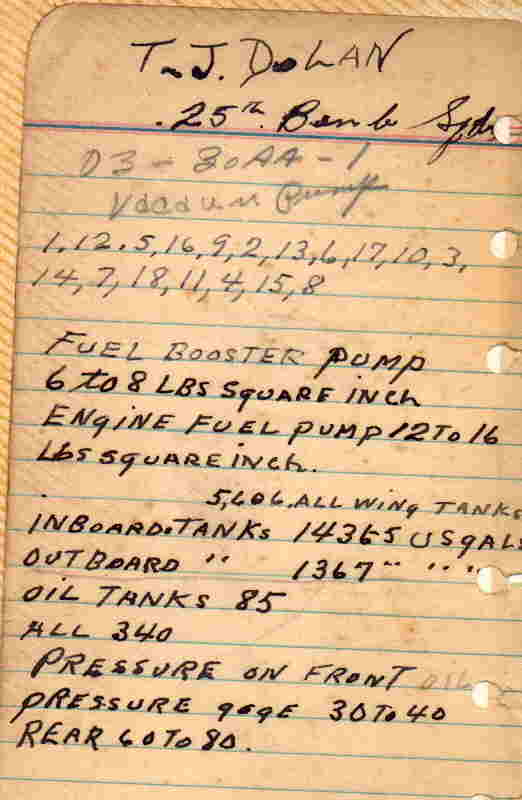 T.J. DOLAN
.25th. Bomb Sqdn
D3-80AA-1
Vacuum Pump
1,12,5,16,9,2,13,6,17,10,3,
14,7,18,11,4,15,8
FUEL BOOSTER PUMP
6 to 8 LBS SQUARE INCH
ENGINE FUEL PUMP 12 TO 16
Lbs SQUARE INCH.
5,606. ALL WING TANKS
INBOARD TANKS 1436.5 US GALS
OUTBOARD " 1367 " " "
OIL TANKS 85
ALL 340
PRESSURE ON FRONT OIL
PRESSURE gage 30 TO 40
REAR 60 TO 80.